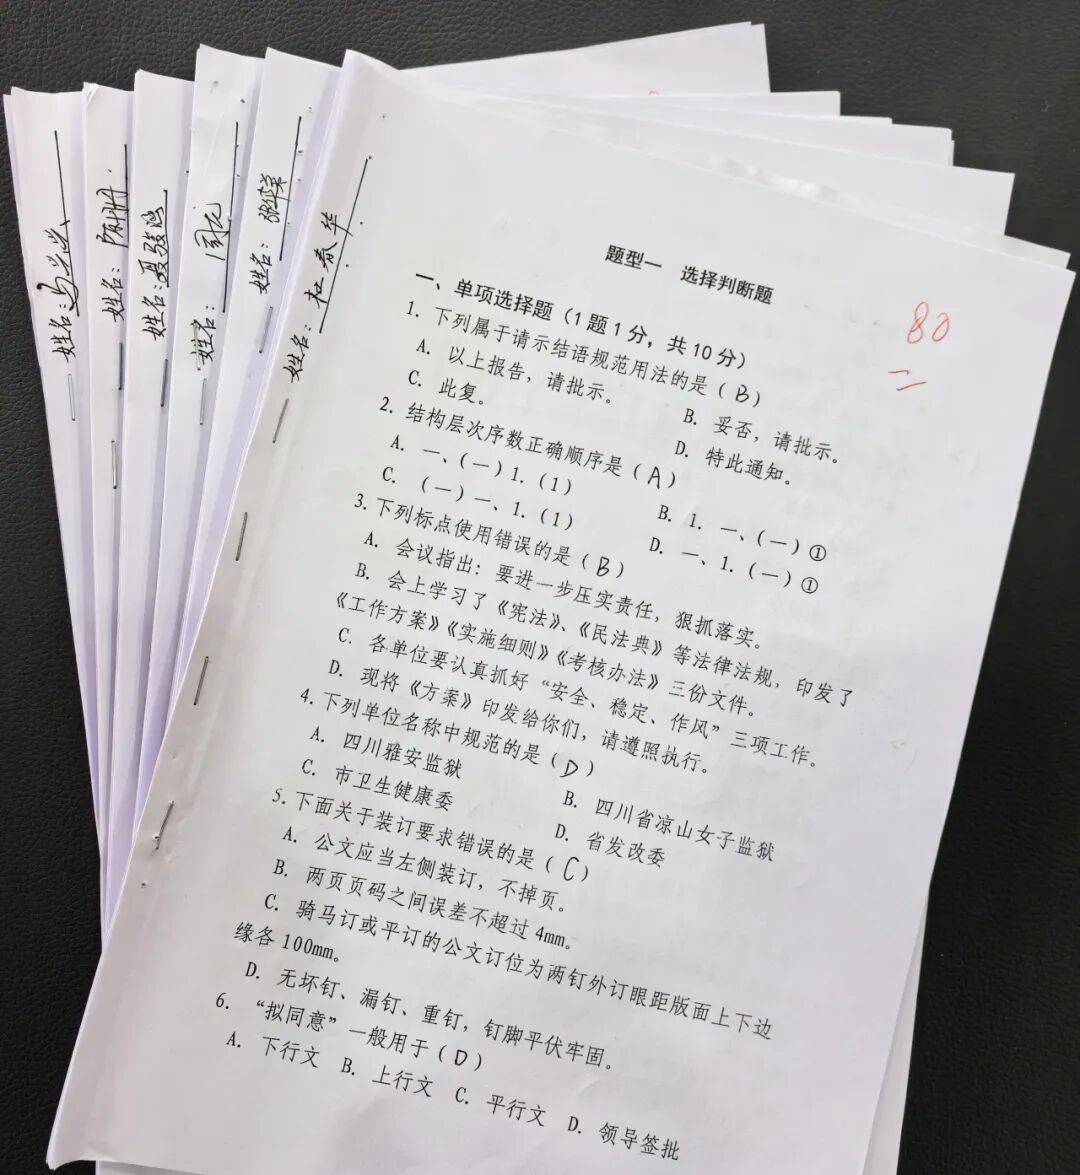 姓名：
姓名：
姓名：聂骏鸿
姓名：周龙
姓名：
姓名：杜春华
80
题型一 选择判断题
一、单项选择题（1题1分，共10分）
1. 下列属于请示结语规范用法的是（B）
A. 以上报告，请批示。 B. 妥否，请批示。
C. 此复。 D. 特此通知。
2. 结构层次序数正确顺序是（A）
A. 一、（一）1.（1） B. 1. 一、（一）①
C. （一）一、1.（1） D. 一、1.（一）①
3. 下列标点使用错误的是（B）
A. 会议指出：要进一步压实责任，狠抓落实。
B. 会上学习了《宪法》、《民法典》等法律法规，印发了
《工作方案》《实施细则》《考核办法》三份文件。
C. 各单位要认真抓好“安全、稳定、作风”三项工作。
D. 现将《方案》印发给你们，请遵照执行。
4. 下列单位名称中规范的是（D）
A. 四川雅安监狱 B. 四川省凉山女子监狱
C. 市卫生健康委 D. 省发改委
5. 下面关于装订要求错误的是（C）
A. 公文应当左侧装订，不掉页。
B. 两页页码之间误差不超过4mm。
C. 骑马订或平订的公文订位为两钉外订眼距版面上下边
缘各100mm。
D. 无坏钉、漏钉、重钉，钉脚平伏牢固。
6. “拟同意”一般用于（D）
A. 下行文 B. 上行文 C. 平行文 D. 领导签批